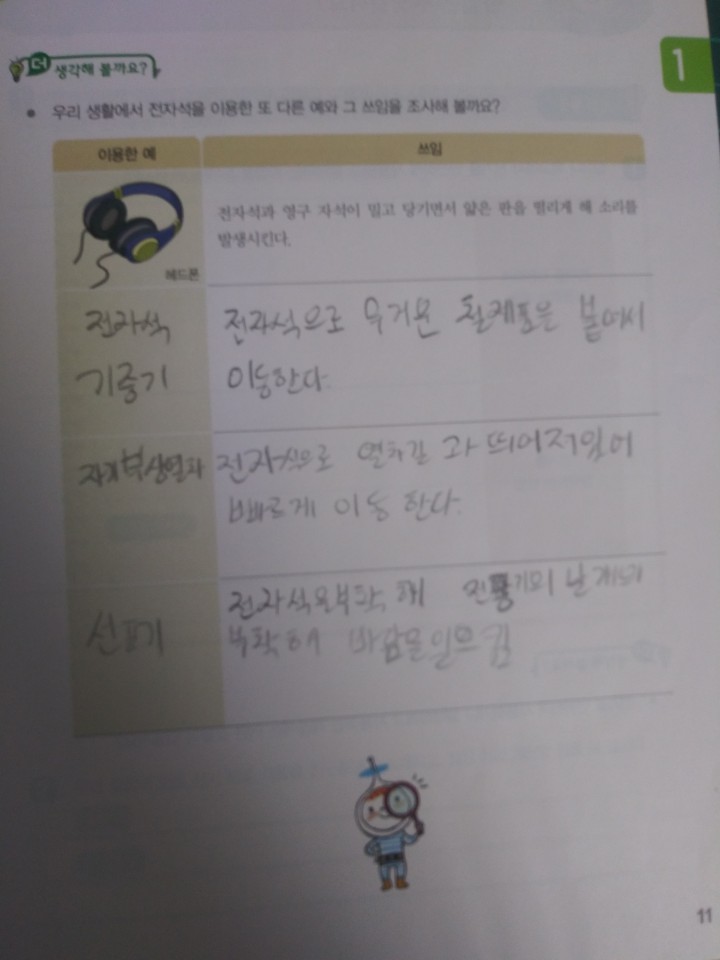 더 생각해 볼까요?
1
우리 생활에서 전자석을 이용한 또 다른 예와 그 쓰임을 조사해 볼까요?
이용한 예
쓰임
전자석과 영구 자석이 밀고 당기면서 얇은 판을 떨리게 해 소리를
발생시킨다.
헤드폰
전자석
기중기
전자석으로 무거운 철제품을 붙여서
이동한다.
자기부상열차
전자석으로 열차길 과 띄어저있어
빠르게 이동 한다.
선풍기
전자석을부착 해 전동기의 날개
부착해서 바람을일으킴
11